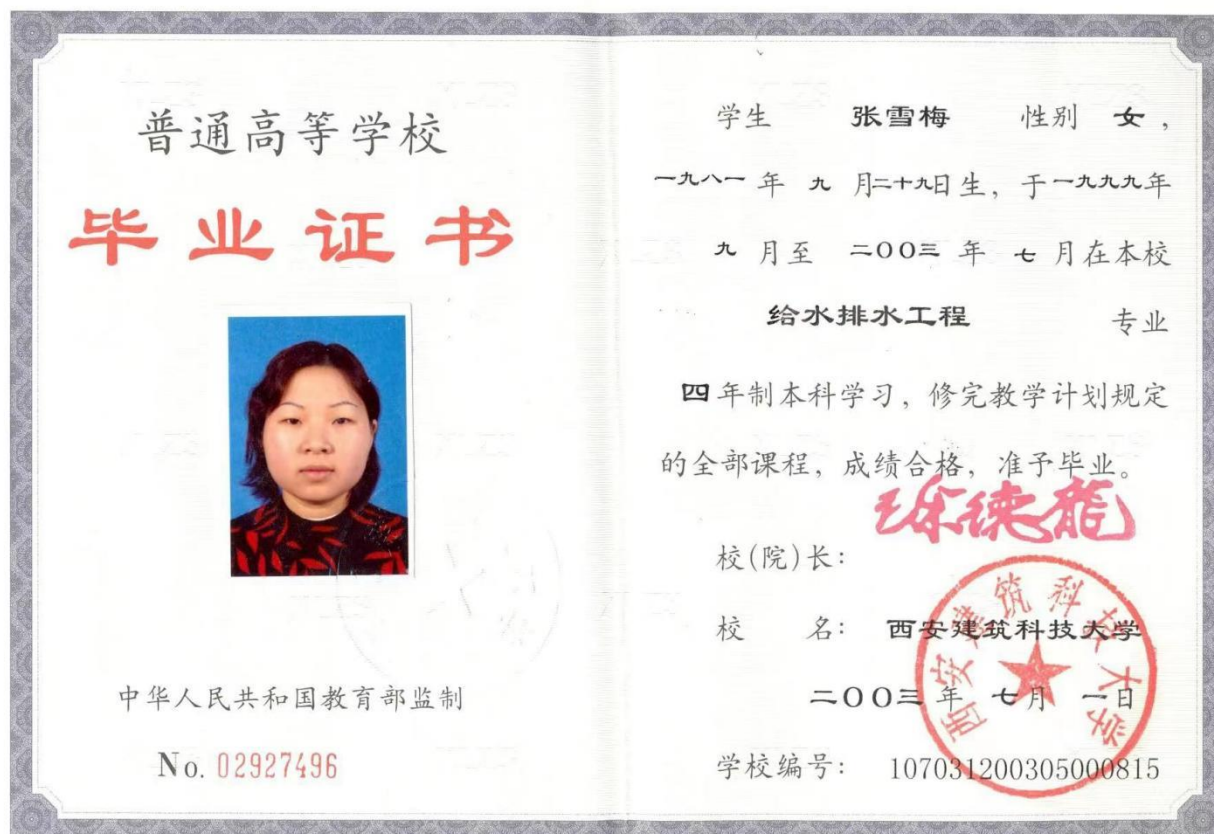 普通高等学校
毕业证书
中华人民共和国教育部监制
No. 02927496
学生 张雪梅 性别 女，
一九八一 年 九 月二十九日生，于一九九九年
九 月至 二〇〇三 年 七 月在本校
给水排水工程 专业
四年制本科学习，修完教学计划规定
的全部课程，成绩合格，准予毕业。
徐德龍
校(院)长：
校 名： 西安建筑科技大学
二〇〇三 年 七月 一日
学校编号： 107031200305000815
西安建筑科技大学